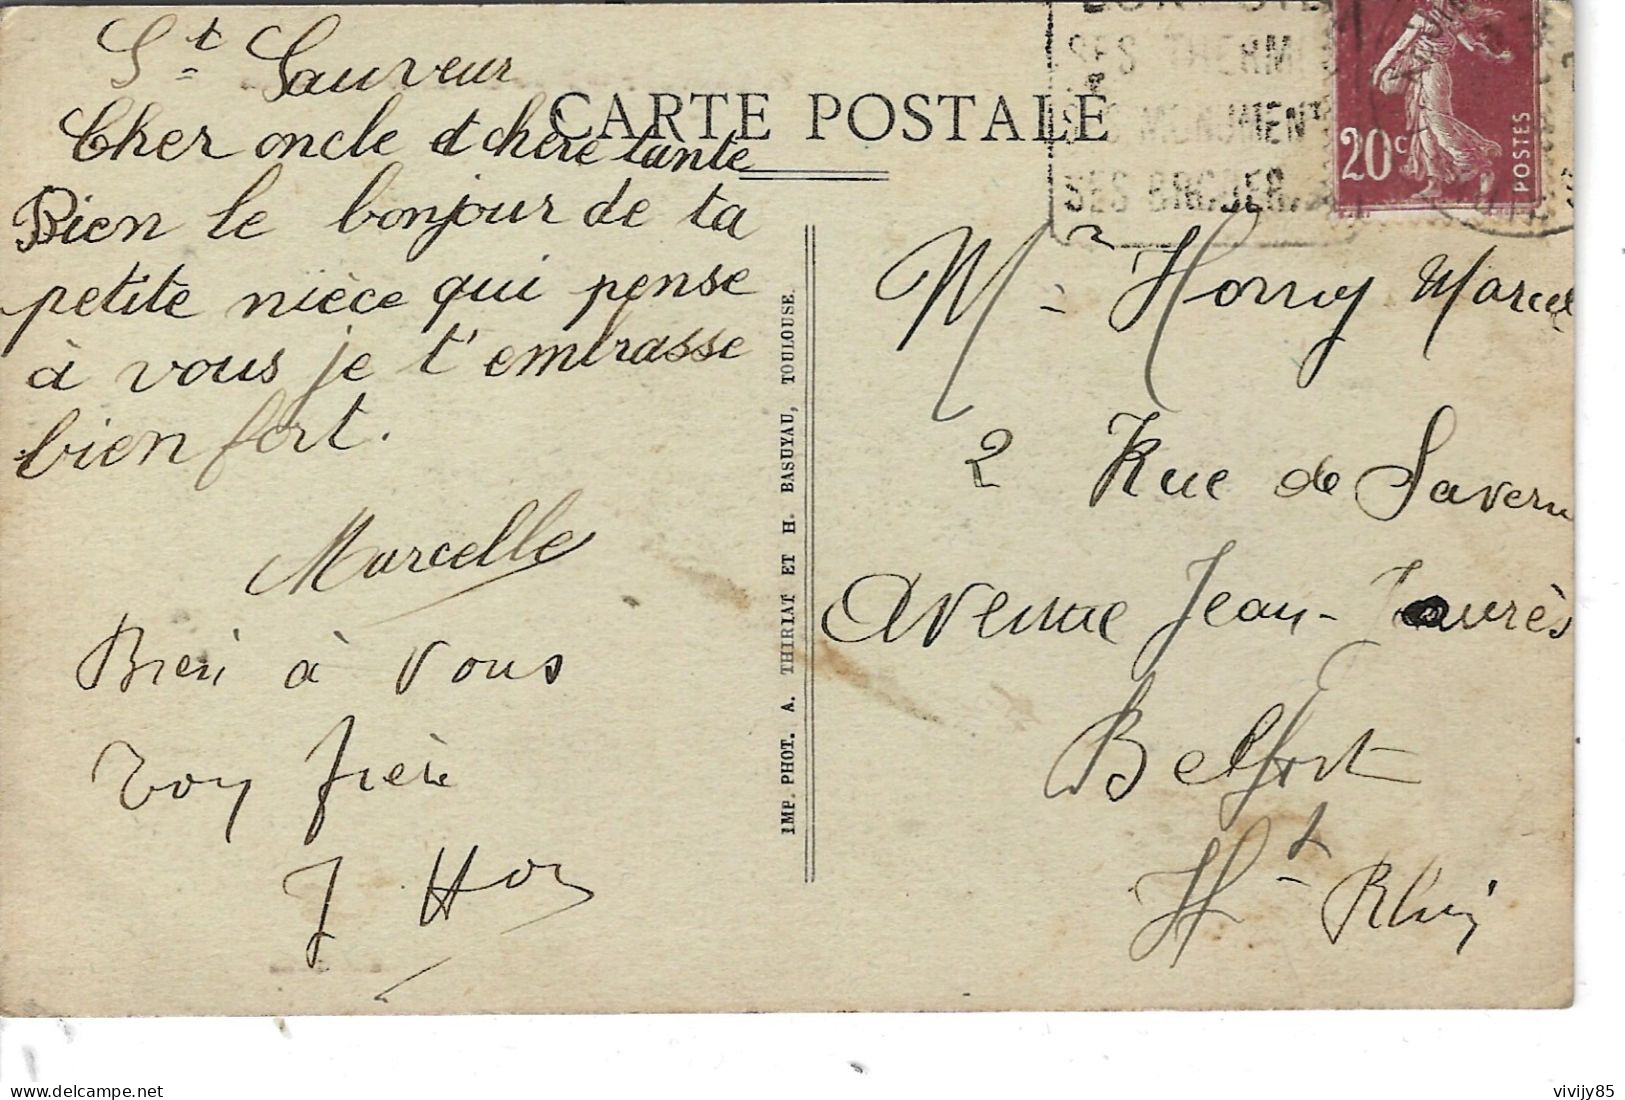 St Sauveur
CARTE POSTALE
Cher oncle et chère tante
Bien le bonjour de ta
petite nièce qui pense
à vous je t'embrasse
bien fort.
Marcelle
Bien à vous
Ton frère
J
IMP. PHOT. A. THIRIAT ET H. BASUYAU, TOULOUSE.
SES THERM
MONUMENT
SES
20c
POSTES
Mr Marcel
2 Rue de Savern
Avenue Jean-Jaurès
Belfort
Ht Rhin
vivijy85